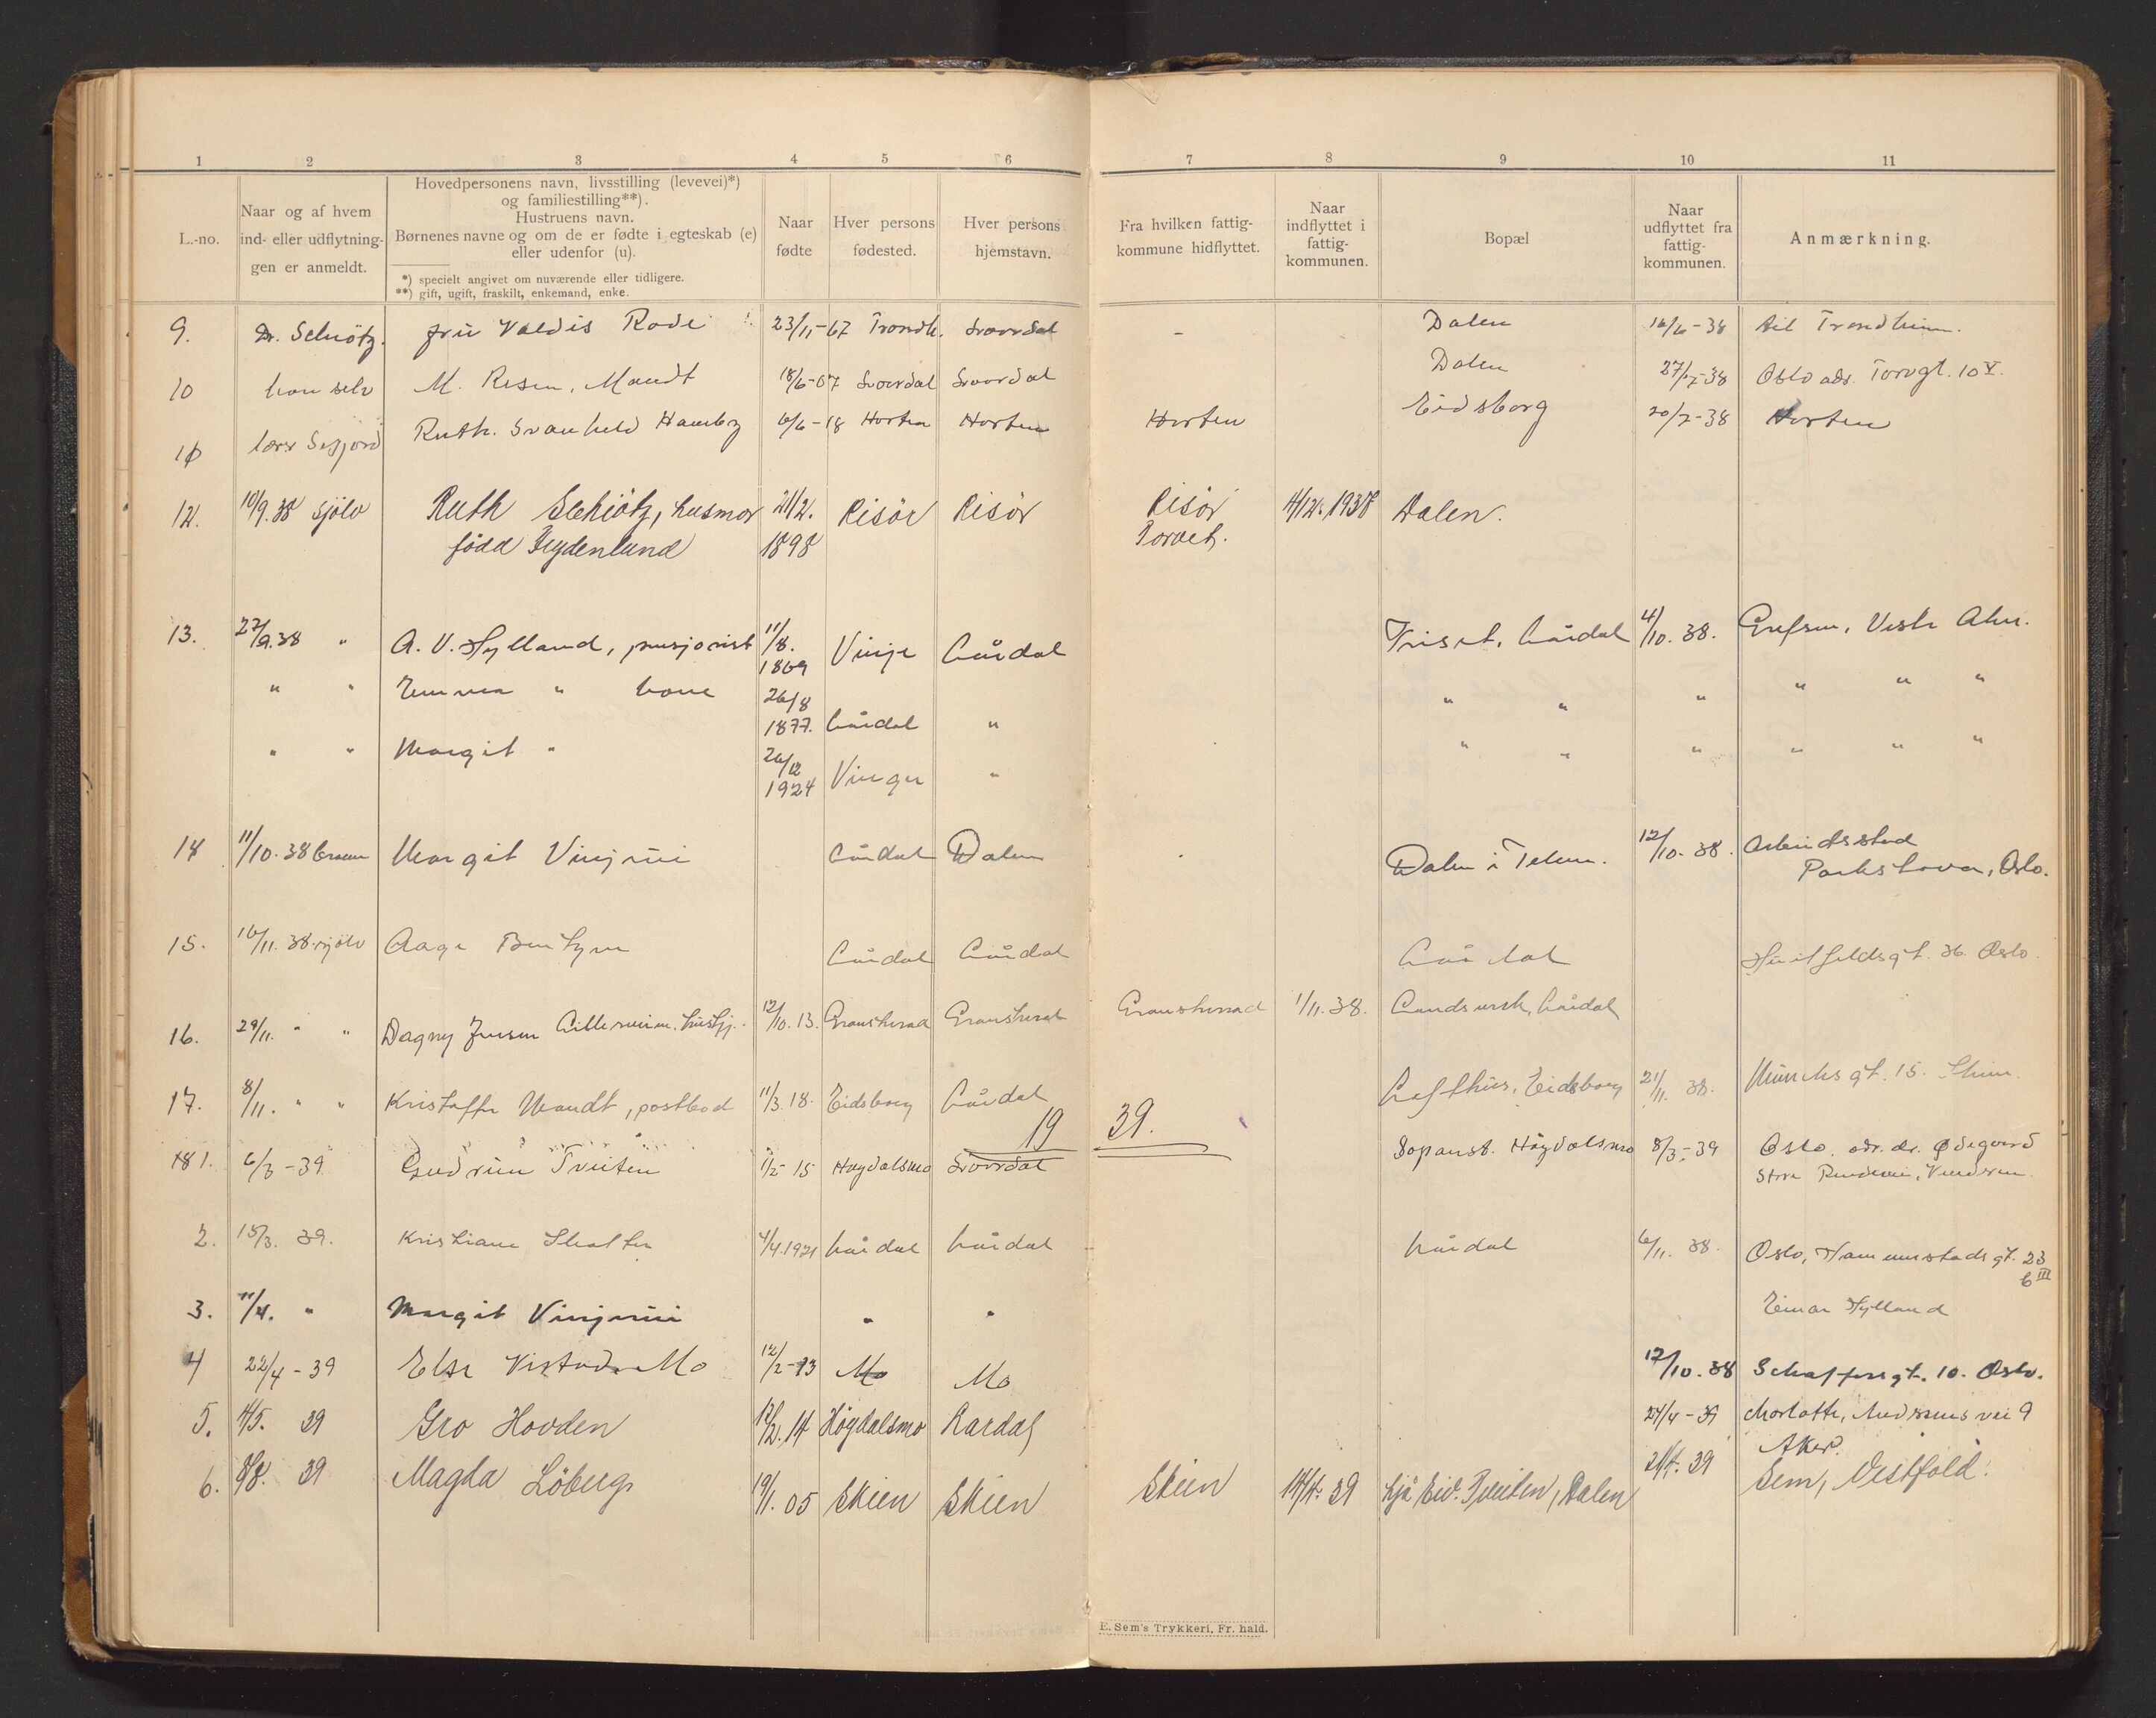 1 2 3 4 5 6 7 8 9 10 11
L.-no.
Naar og af hvem
ind- eller udflytnin-
gen er anmeldt.
Hovedpersonens navn, livsstilling (levevei)*)
og familiestilling**).
Hustruens navn.
Børnenes navne og om de er fødte i egteskab (e)
eller udenfor (u).
*) specielt angivet om nuværende eller tidligere.
**) gift, ugift, fraskilt, enkemand, enke.
Naar
fødte
Hver persons
fødested.
Hver persons
hjemstavn.
Fra hvilken fattig-
kommune hidflyttet.
Naar
indflyttet i
fattig-
kommunen.
Bopæl
Naar
udflyttet fra
fattig-
kommunen.
Anmærkning.
9. Dr. Schiötz. fru Valdis Rode 23/11-67 Trondh. Laardal - Dalen 16/6-38 til Trondheim.
10 han selv M. Resen, Mandt 18/6-07 Laardal Laardal Dalen 27/7-38 Oslo ads. Torvgt. 10 V.
11 Ruth. Svanhild 6/6-18 Horten Horten Horten Eidsborg 20/7-38 Horten
12. 10/9.38 sjölv Ruth Schiötz, husmor 21/2. Risör Risör Risör 4/12.1937 Dalen.
född 1898 Torvet.
13. 27/9.38 " A. V. Hylland, pensjonist 11/8. 1869 Vinje Lårdal Triset, Lårdal 4/10.38. Grefsen, Vestre Aker.
" " Emma " kone 26/8 1877. Lårdal " " " " " " "
" " Margit " 26/12 1924 Vinger " " " " " " "
14 11/10.38 Margit Vinjrui Lårdal Dalen Dalen i Telem. 12/10.38. Arbeidsstad
Parkstova, Oslo.
15. 16/11.38 sjölv Aage Lårdal Lårdal Lårdal Huitfeldsgt. 36 Oslo.
16. 29/11. " " Dagny Jensen 12/10.13. Gransherad Gransherad Gransherad 1/11.38. Lårdal
17. 8/11. " " Kristoffer Mandt, postbod 11/3.18. Eidsborg Lårdal Lofthus, Eidsborg 21/11 38. Munchs gt. 15.
19 39.
18 1. 6/3-39 Gudrun Tveiten 1/2-15 Høgdalsmo Laardal Høydalsmo 8/3-39 Oslo. adr. dr. Ødegaard
Store Vinderen.
2. 15/3. 39. Kristiane 4/4.1921 Lårdal Lårdal Lårdal 6/11. 38. Oslo, Hammerstads gt. 23
b III
3. 11/4. " Margit Vinjrui " " Einar Hylland
4 22/4-39 Else Vistad Mo 12/2-13 Mo Mo 12/10.38 Schaffers gt. 10. Oslo.
5. 4/5. 39 Gro Hovden 12/2.14 Høydalsmo Lardal 24/4-39 Charlotte, Andersens vei 9
Aker.
6. 8/8. 39 Magda Löberg 19/1.05 Skien Skien Skien 14/4.39 hjå Eiv. Tveiten, Dalen 21/7.39 Sem, Vestfold.
E. Sem's Trykkeri, Fr. hald.